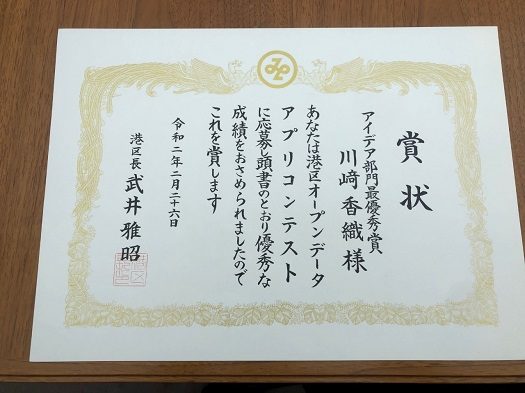 賞状
アイデア部門最優秀賞
川﨑香織様
あなたは港区オープンデータ
アプリコンテスト
に応募し頭書のとおり優秀な
成績をおさめられましたので
これを賞します
令和二年二月二十六日
港区長 武井雅昭